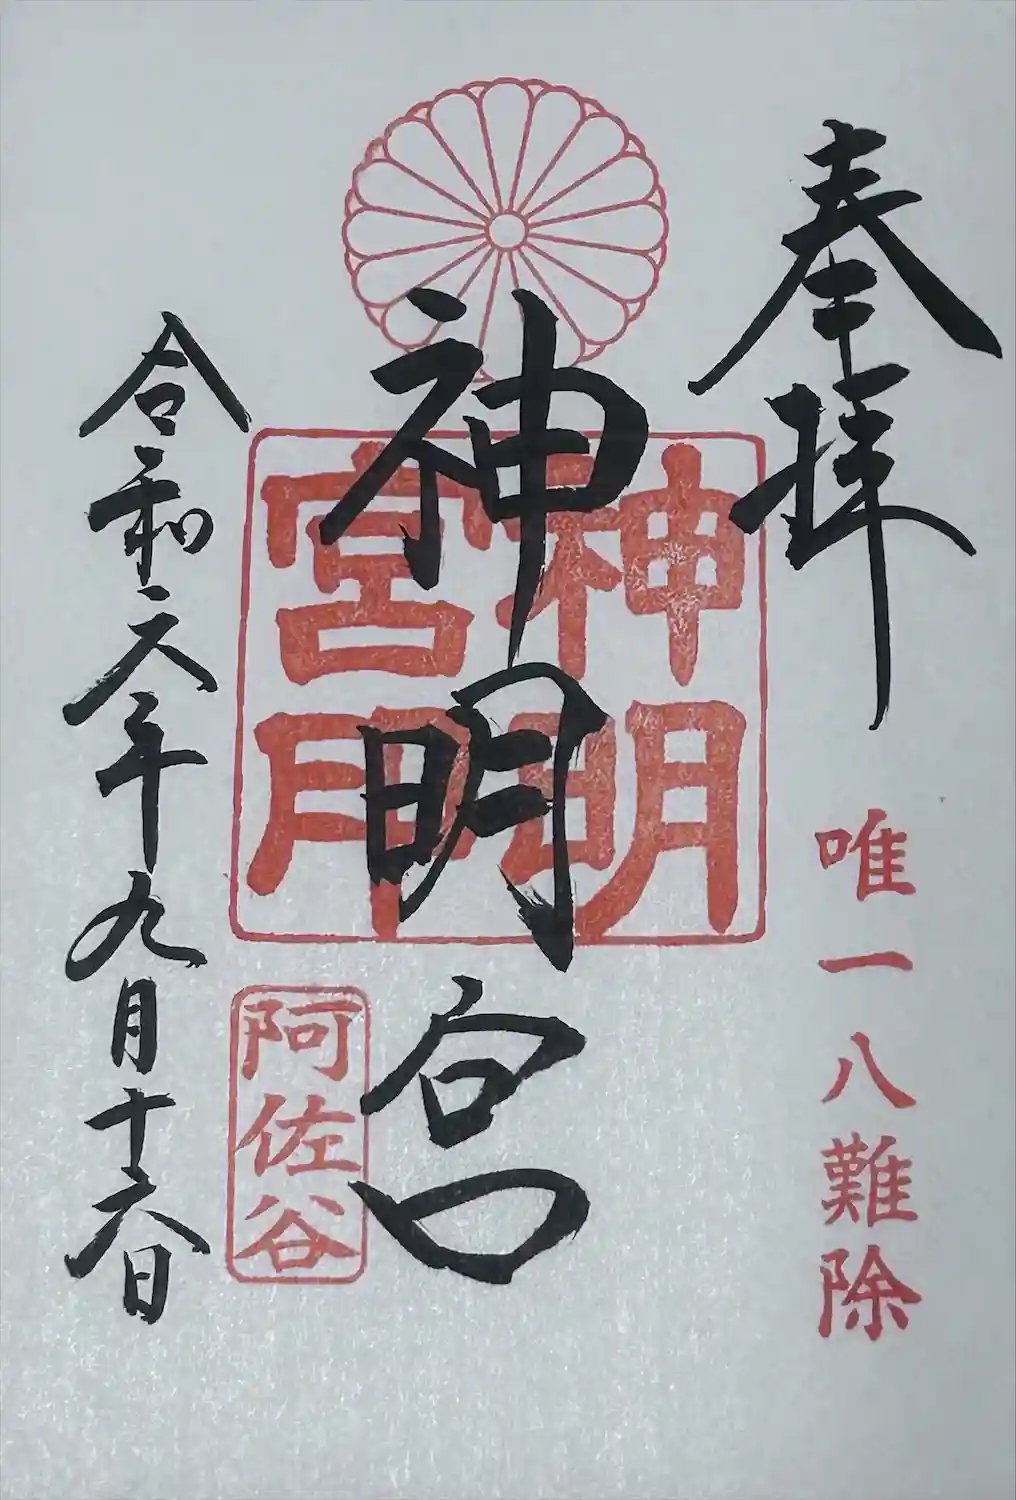 奉拝
唯一八難除
神明宮
神明宮印
阿佐谷
令和六年九月十六日